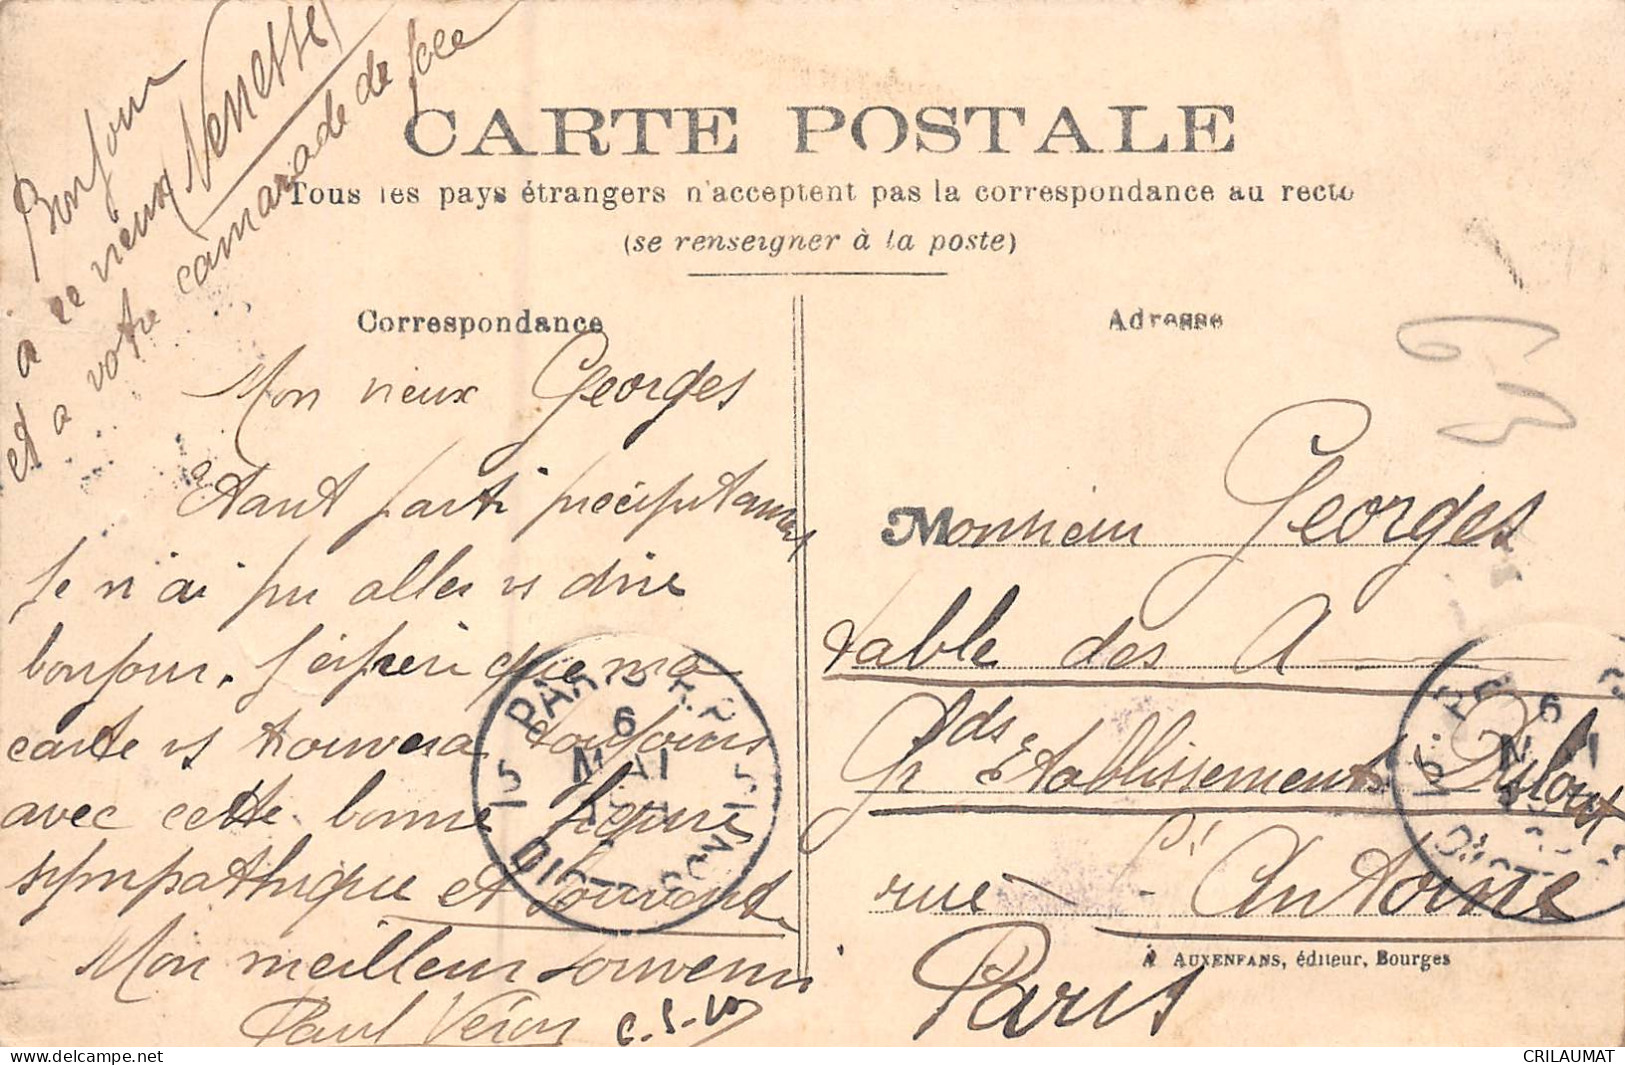 Bonjour
a ce vieux Nenesse
et a votre camarade de
CARTE POSTALE
Tous les pays étrangers n'acceptent pas la correspondance au recto
(se renseigner à la poste)
Correspondance
Adresse
Mon vieux Georges
Etant parti précipitamment
Je n'ai pu aller vs dire
bonjour. J'espère que ma
carte vs trouvera toujours
avec cette bonne figure
sympathique et souriante
Mon meilleur souvenir
Paul Véron
Monsieur Georges
table des A
Gds Etablissements
rue St Antoine
Paris
A AUXENFANS, éditeur, Bourges
PARIS
DISTRIBUTION
CRILAUMAT